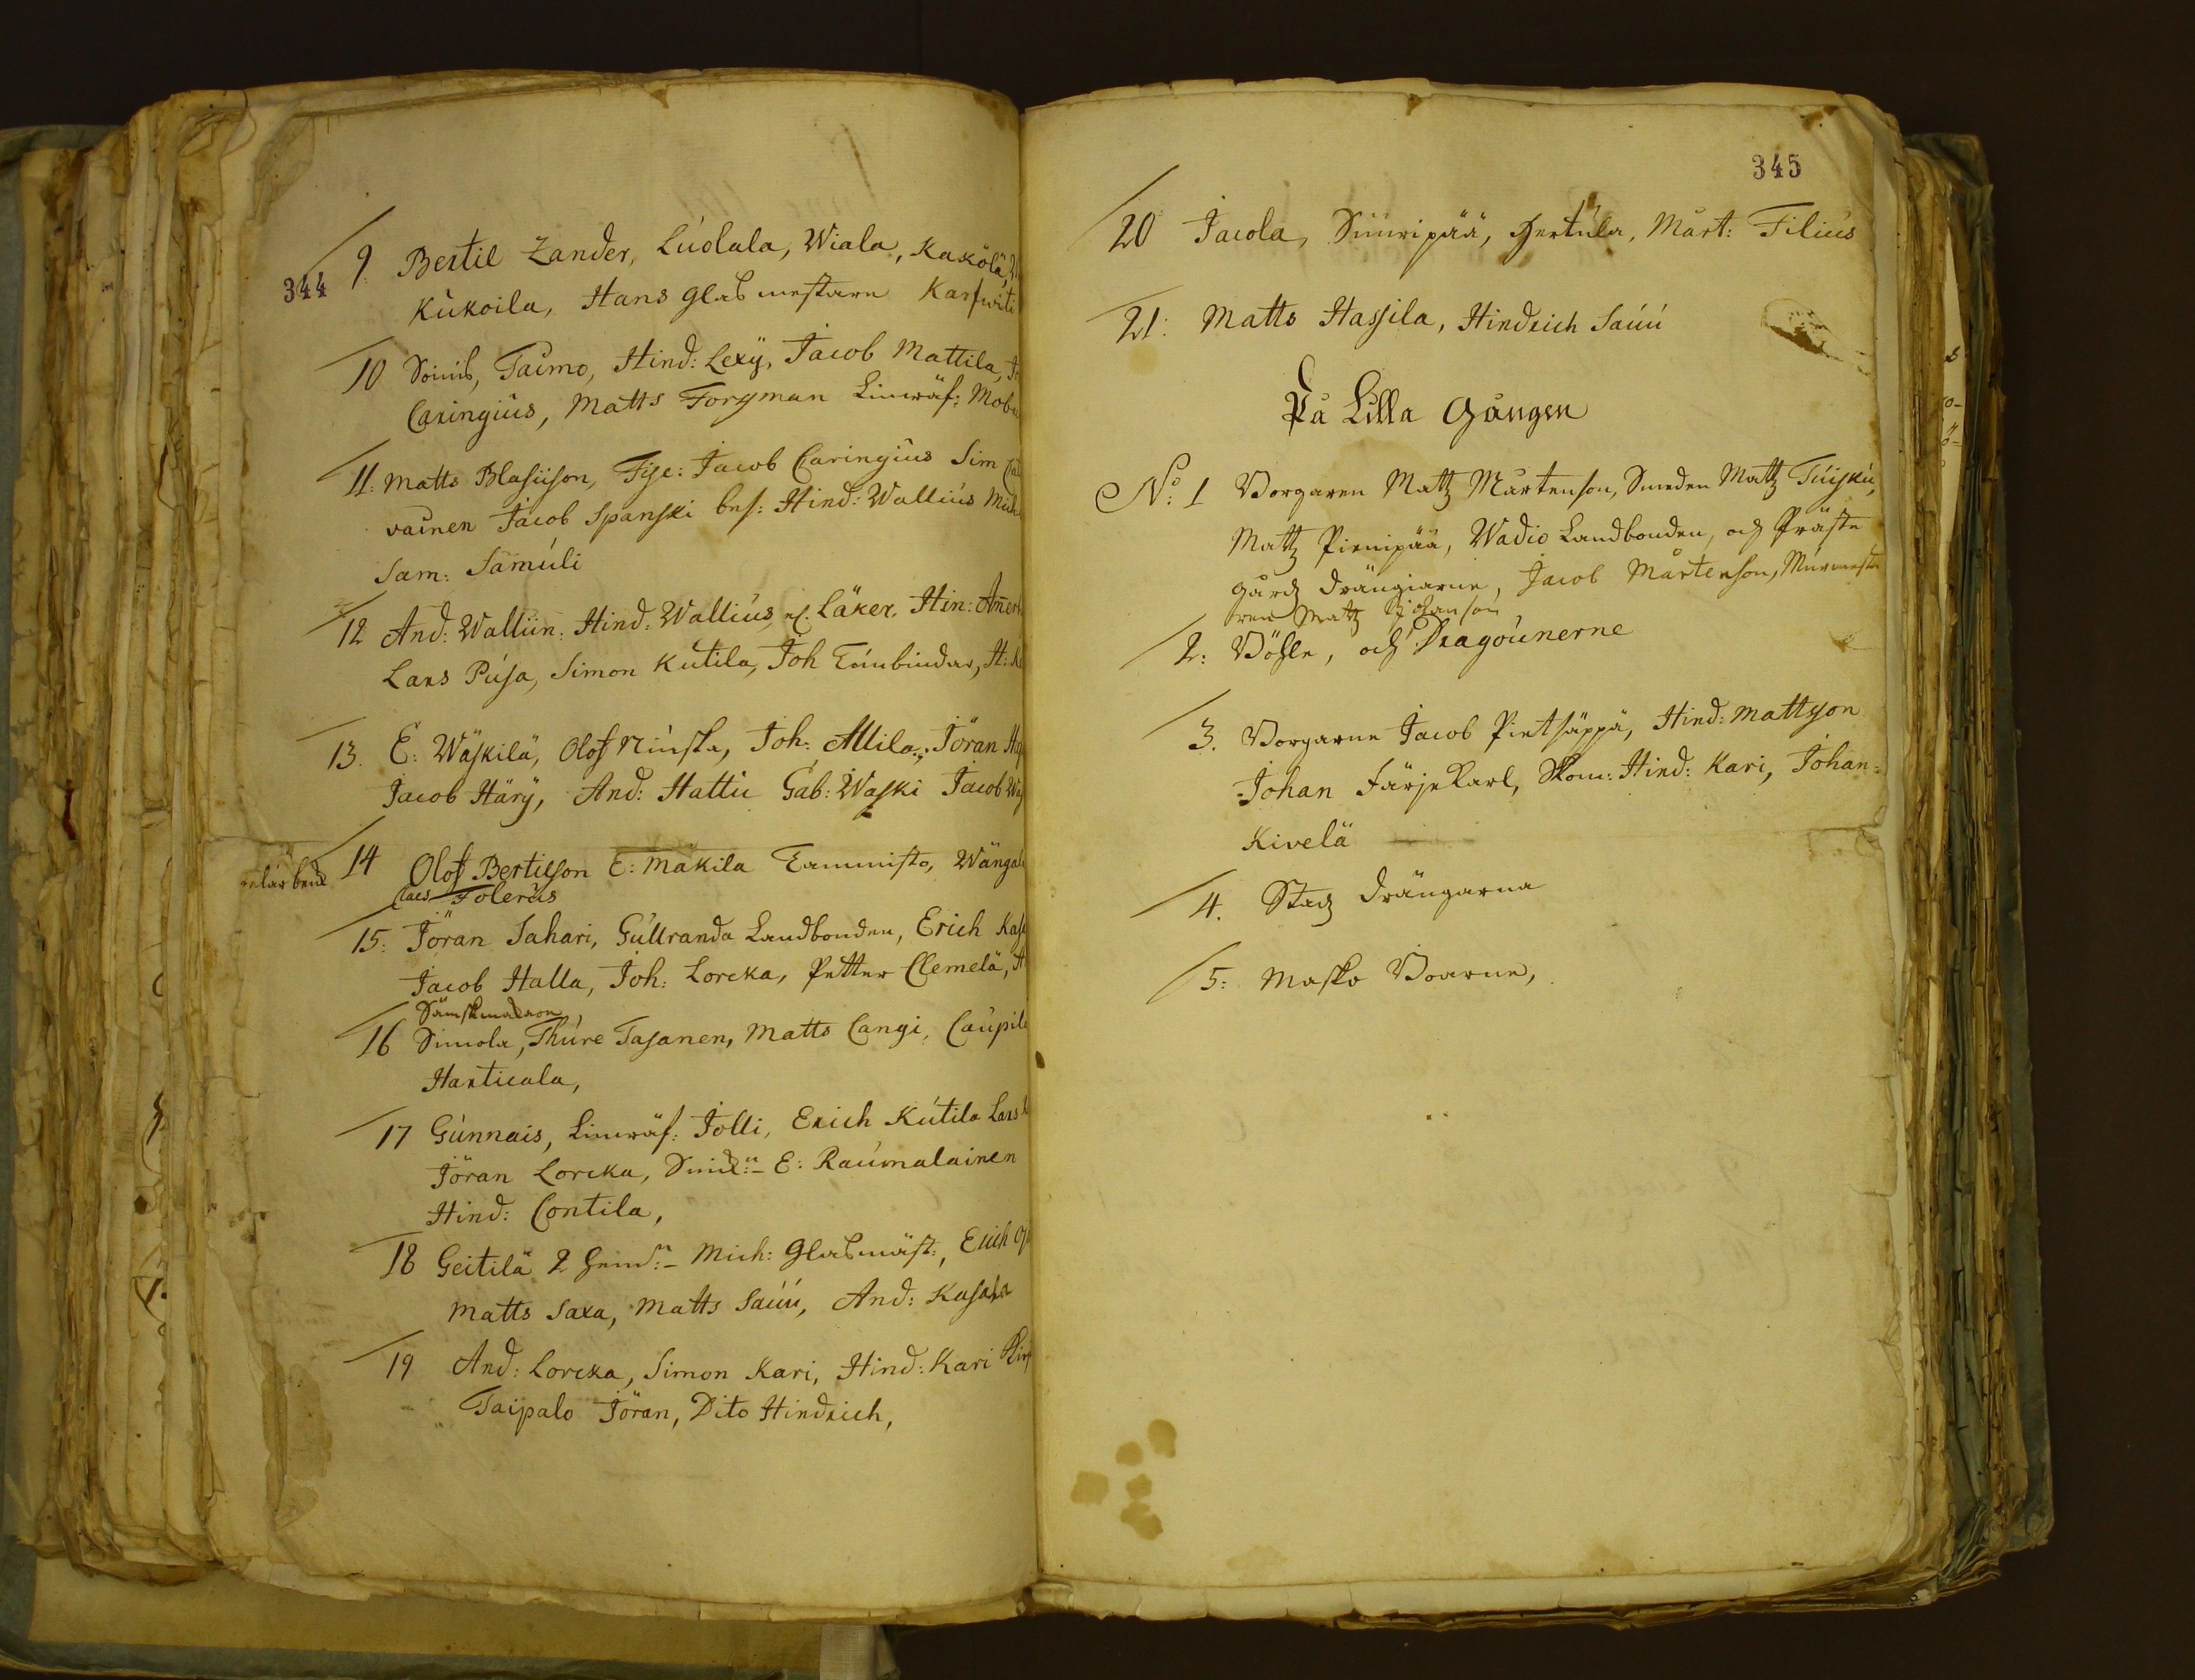 344
9. Bertil Zander, Luolala, Wiala, Kakola,
Kukoila, Hans Glasmestare
10 Soinis, Taimo, Hind: Lexy, Jacob Mattila,
Caringius, Matts Forsman Linwäf:
11. Matts Blasiison, Fisc: Jacob Caringius Sim
vainen Jacob Spanski bes: Hind: Wallius
Sam: Samuli
12 And: Walliin. Hind: Wallius, Läker, Hin:
Lars Pusa, Simon Kutila, Joh
13. E: Wäskilä, Olof Niuska, Joh: Allila, Jöran
Jacob Häry, And: Hattu Gab: Waski Jacob
14 Olof Bertilson E: Mäkila Tammisto,
Claes Folerus
15: Jöran Sahari, Gullranda Landbonden, Erich
Jacob Halla, Joh: Lorcka, Petter Clemelä,
Sämskmakaren,
16 Simola, Thure Tasanen, Matts Cangi,
Harticala,
17 Gunnais, Linwäf: Jolli, Erich Kutila Lars
Jöran Lorcka, E: Raumalainen
Hind: Contila,
18 Geitilä 2 Hem:- Mich: Glasmäst:, Erich
Matts Saxa, Matts Sauu, And:
19 And: Lorcka, Simon Kari, Hind: Kari
Taipalo Jöran, Dito Hindrich,
345
20 Jacola, Suuripää, Hertula, Mårt: Filius
21: Matts Hassila, Hindrich Sauu
På Lilla Gången
No: 1 Borgaren Mattz Mårtenson, Smeden Mattz Tuisku,
Mattz Pienipää, Wadio Landbonden, och Präste
gårdz drängiarne, Jacob Mårtenson, Murmesta
ren Mattz Johanson
2: Böhle, och Dragounerne
3. Borgarne Jacob Pietsäppä, Hind: Mattson
Johan Färjekarl, Skom: Hind: Kari, Johan
Kivelä
4. Stadz drängarna
5: Masko Boarne,